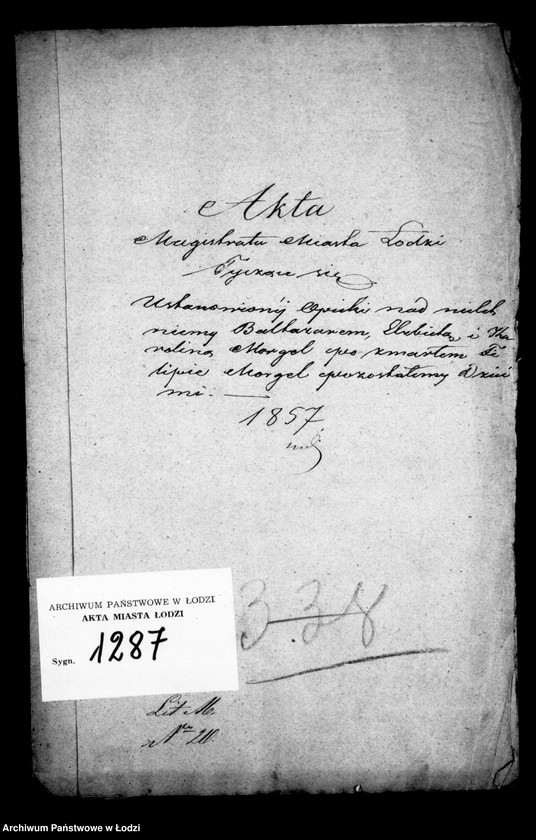 Akta
Magistratu Miasta Łodzi
Tyczące się
Ustanowionéj Opieki nad nielet
niemy Baltazarem, Elżbietą i Ka
roliną Morgel po zmarłem Fi
lipie Morgel pozostałemy Dzieć
mi. —
1857
3.38
ARCHIWUM PAŃSTWOWE W ŁODZI
AKTA MIASTA ŁODZI
Sygn. 1287
Lit M.
Archiwum Państwowe w Łodzi